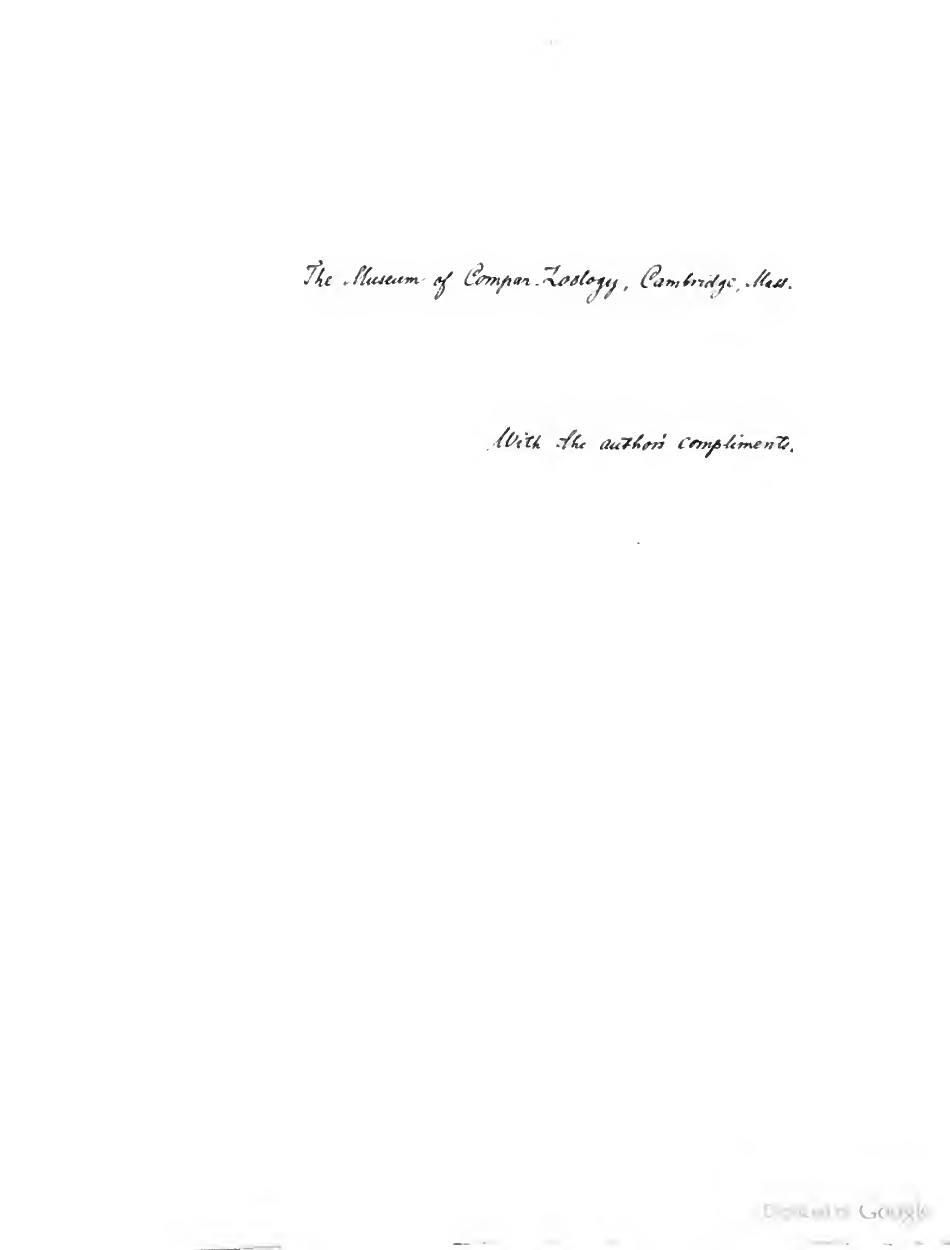 The Museum of Compar. Zoology, Cambridge, Mass.
With the author's compliments.
Digitized by Google